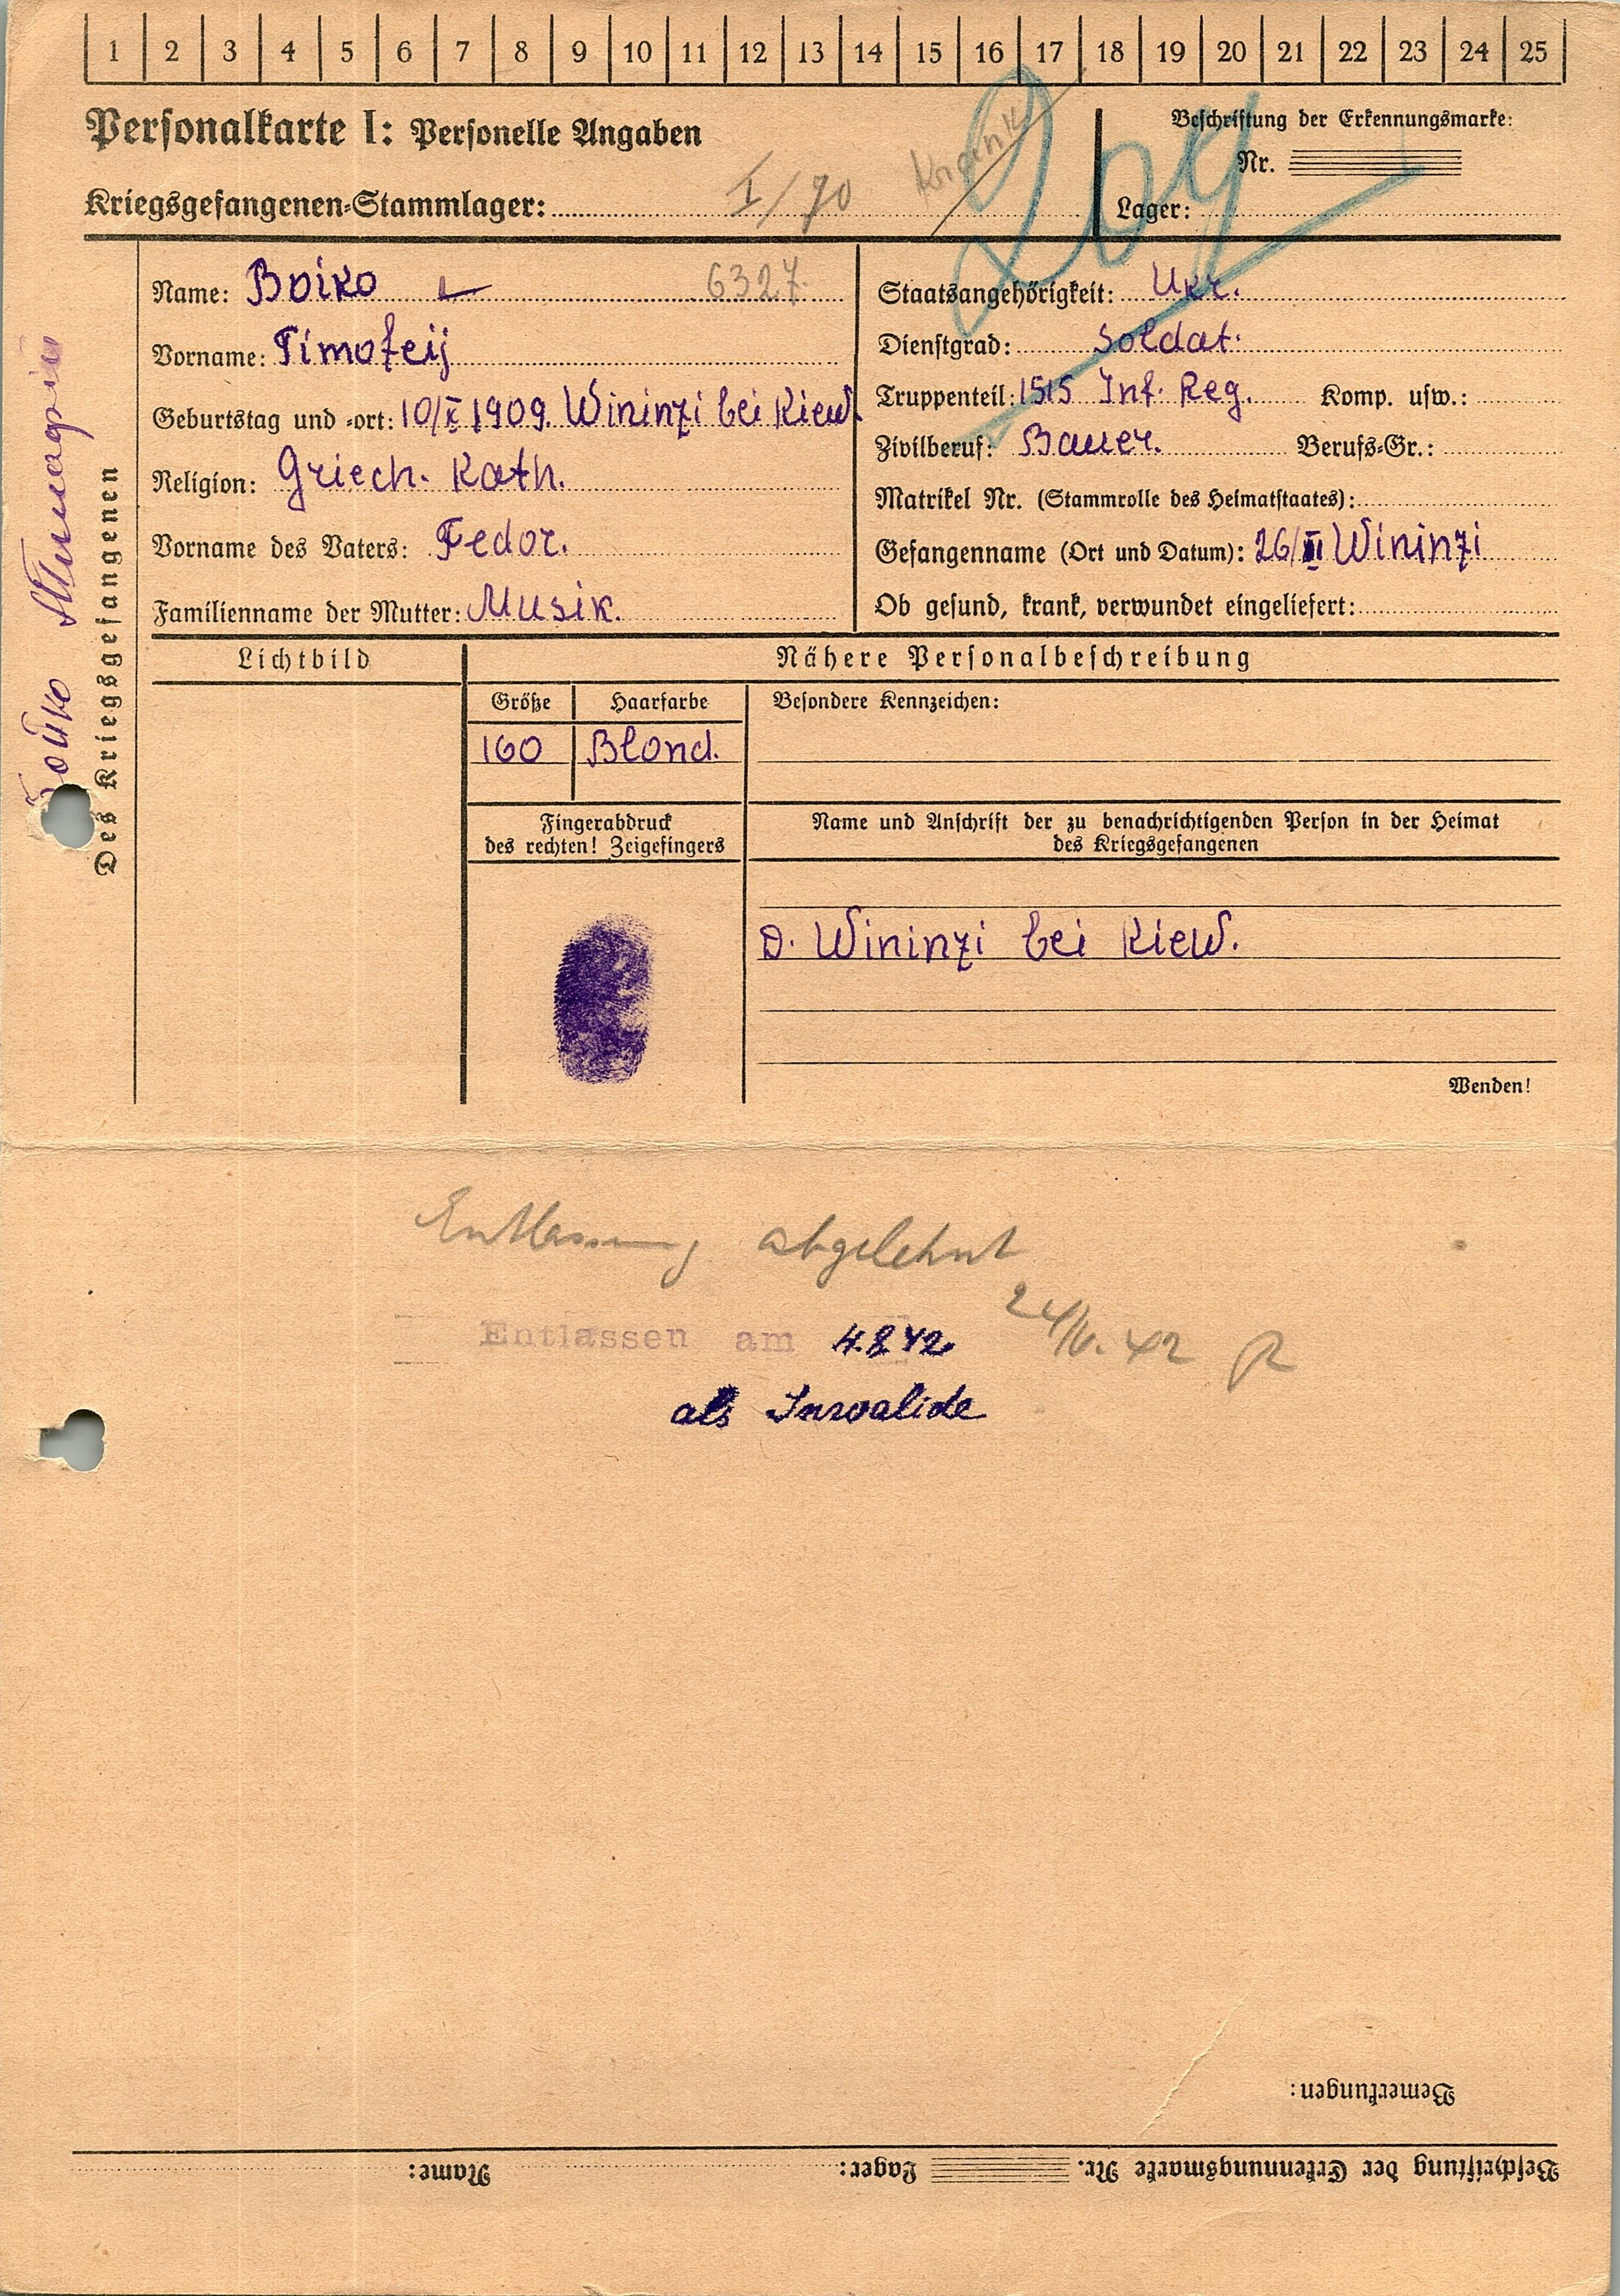 1 2 3 4 5 6 7 8 9 10 11 12 13 14 15 16 17 18 19 20 21 22 23 24 25
Personalkarte I: Personelle Angaben
Kriegsgefangenen-Stammlager: I/70
Krank
209
Beschriftung der Erkennungsmarke:
Nr.
Lager:
Бойко
Des Kriegsgefangenen
Name: Boiko 6327
Vorname: Timofeij
Geburtstag und -ort: 10/X 1909. Wininzi bei Kiew
Religion: Griech. Kath.
Vorname des Vaters: Fedor.
Familienname der Mutter: Musik.
Staatsangehörigkeit: Ukr.
Dienstgrad: Soldat.
Truppenteil: 1515 Inf. Reg. Komp. usw.:
Zivilberuf: Bauer. Berufs-Gr.:
Matrikel Nr. (Stammrolle des Heimatstaates):
Gefangenname (Ort und Datum): 26/ Wininzi
Ob gesund, krank, verwundet eingeliefert:
Lichtbild
Nähere Personalbeschreibung
Größe Haarfarbe Besondere Kennzeichen:
160 Blond.
Fingerabdruck
des rechten! Zeigefingers
Name und Anschrift der zu benachrichtigenden Person in der Heimat
des Kriegsgefangenen
D. Wininzi bei Kiew.
Wenden!
Entlassung abgelehnt
Entlassen am 4.8.42
als Invalide
Bemerkungen:
Beschriftung der Erkennungsmarke Nr. Lager: Name: